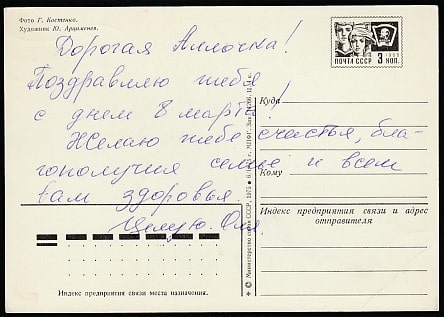 Фото Г. Костенко.
Художник Ю. Арцименев.
Дорогая Аллочка!
Поздравляю тебя
с днем 8 марта!
Желаю тебе счастья, бла-
гополучия семье и всем
вам здоровья.
Целую. Оля.
ПОЧТА СССР 3 КОП
Куда
Кому
Индекс предприятия связи и адрес
отправителя
Министерство связи СССР, 1975
Индекс предприятия связи места назначения.